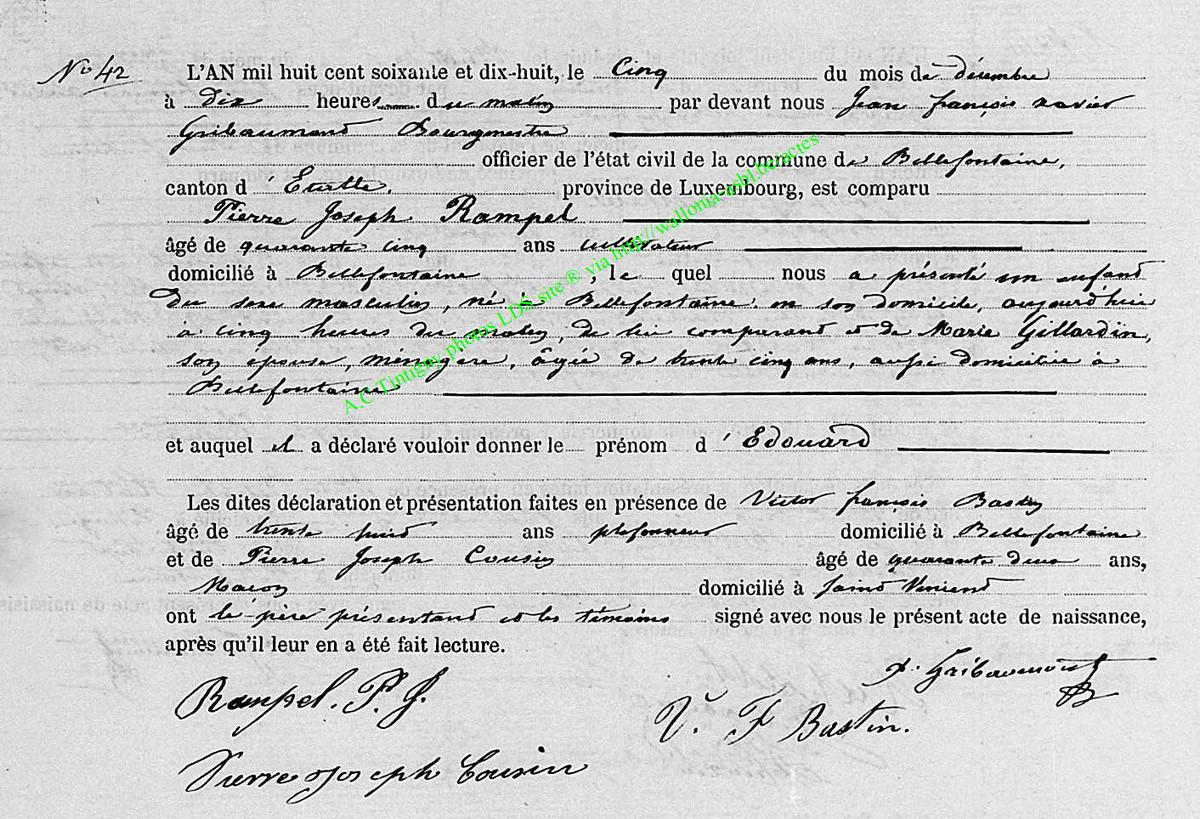 No 42
L'AN mil huit cent soixante et dix-huit, le Cinq du mois de décembre
à Dix heures du matin par devant nous Jean françois xavier
Gribaumont Bourgmestre
officier de l'état civil de la commune de Bellefontaine,
canton d'Etalle. province de Luxembourg, est comparu
Pierre Joseph Rampel
âgé de quarante cinq ans cultivateur
domicilié à Bellefontaine, le quel nous a présenté un enfant
du sexe masculin, né à Bellefontaine en son domicile, aujourd'hui
à cinq heures du matin, de lui comparant et de Marie Gillardin,
son épouse, ménagère, âgée de trente cinq ans, aussi domiciliée à
Bellefontaine
et auquel il a déclaré vouloir donner le prénom d'Edouard
Les dites déclaration et présentation faites en présence de Victor françois Bastin
âgé de trente ans plafonneur domicilié à Bellefontaine
et de Pierre Joseph Cousin âgé de quarante deux ans,
Maçon domicilié à Saint Vincent
ont le père présentant et les témoins signé avec nous le présent acte de naissance,
après qu'il leur en a été fait lecture.
Rampel. P. J.
x. Gribaumont
V. F Bastin.
Pierre Joseph Cousin
A.C Tintigny photos LDS site ® via http://wallonia-asbl.be/actes